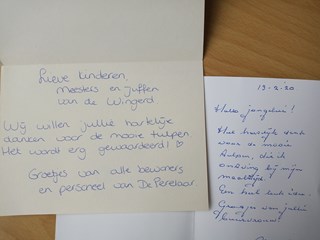 Lieve kinderen,
meesters en juffen
van de Wingerd.
Wij willen jullie hartelijk
danken voor de mooie tulpen.
Het wordt erg gewaardeerd! ♡
Groetjes van alle bewoners
en personeel van De Perelaar.
13-2-20
Hallo jongelui!
Hartelijk dank
voor de mooie
die ik
bij mijn
maaltijd.
Een
van jullie